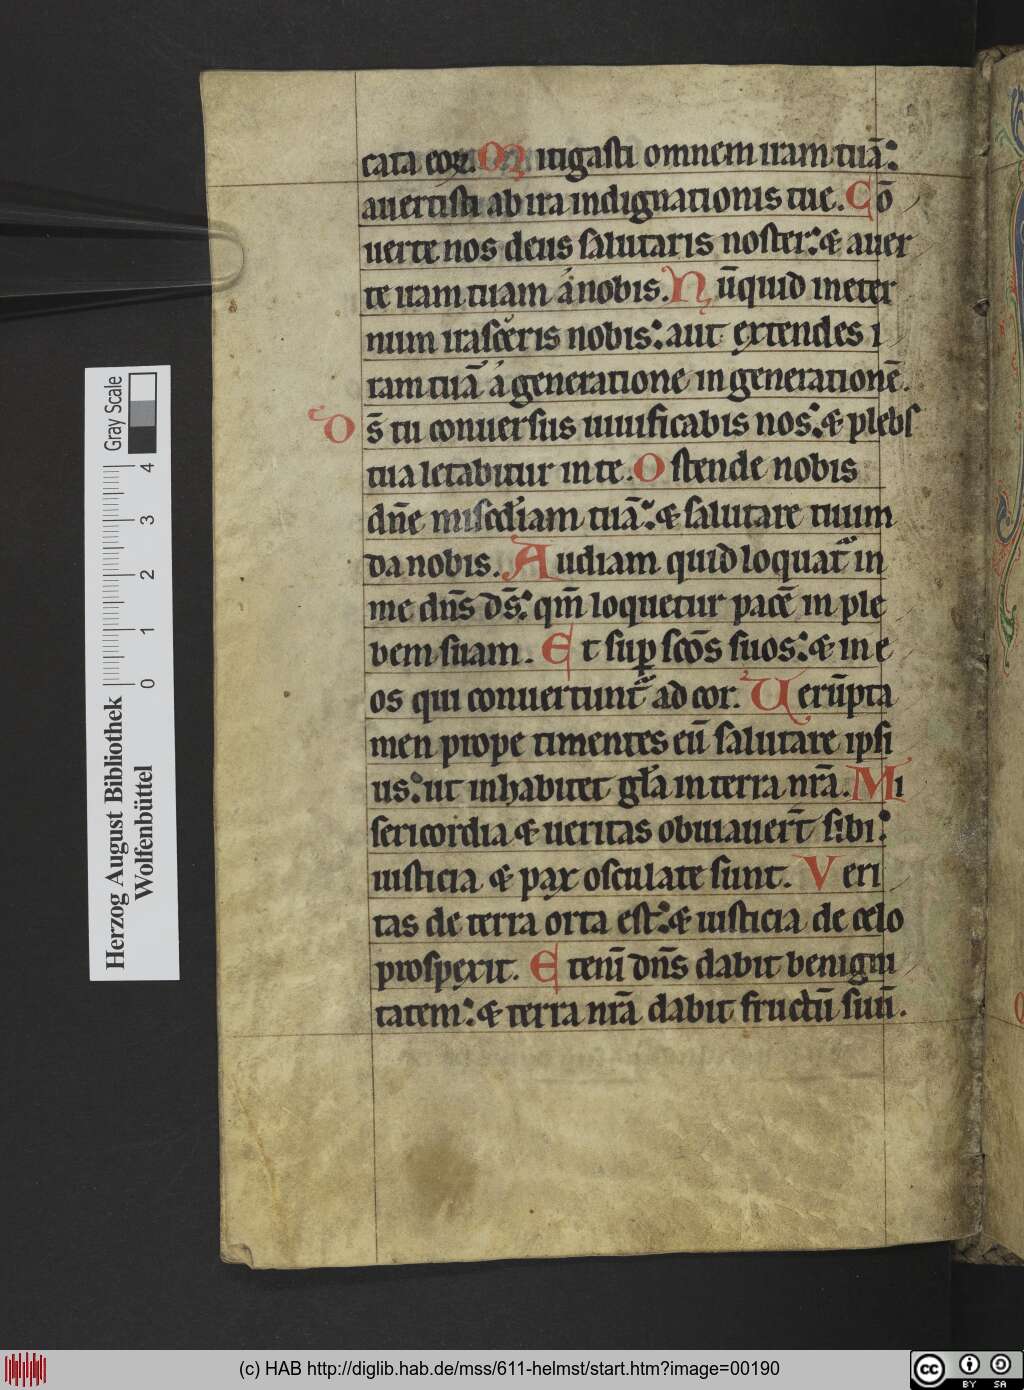 cata eoꝝ. Mitigasti omnem iram tuā:
auertisti ab ira indignationis tue. Cō
uerte nos deus salutaris noster: & auer
te iram tuam a nobis. Nūquid in eter
num irasceris nobis: aut extendes i
ram tuā a generatione in generationē.
Ds̄ tu conuersus uiuificabis nos: & plebs
tua letabitur in te. Ostende nobis
dn̄e misc̄diam tuā: & salutare tuum
da nobis. Audiam quid loquat᷑ in
me dn̄s ds̄: qm̄ loquetur pacē in ple
bem suam. Et suꝑ sc̄os suos: & in e
os qui conuertunt᷑ ad cor. Uerūpta
men prope timentes eū salutare ipsi
us: ut inhabitet gl̄a in terra nr̄a. Mi
sericordia & ueritas obuiauer̄t sibi:
iusticia & pax osculate sunt. Veri
tas de terra orta est: & iusticia de celo
prospexit. Etenī dn̄s dabit benigni
tatem: & terra nr̄a dabit fructū suū.
Herzog August Bibliothek
Wolfenbüttel
0 1 2 3 4
Gray Scale
(c) HAB http://diglib.hab.de/mss/611-helmst/start.htm?image=00190
cc BY SA